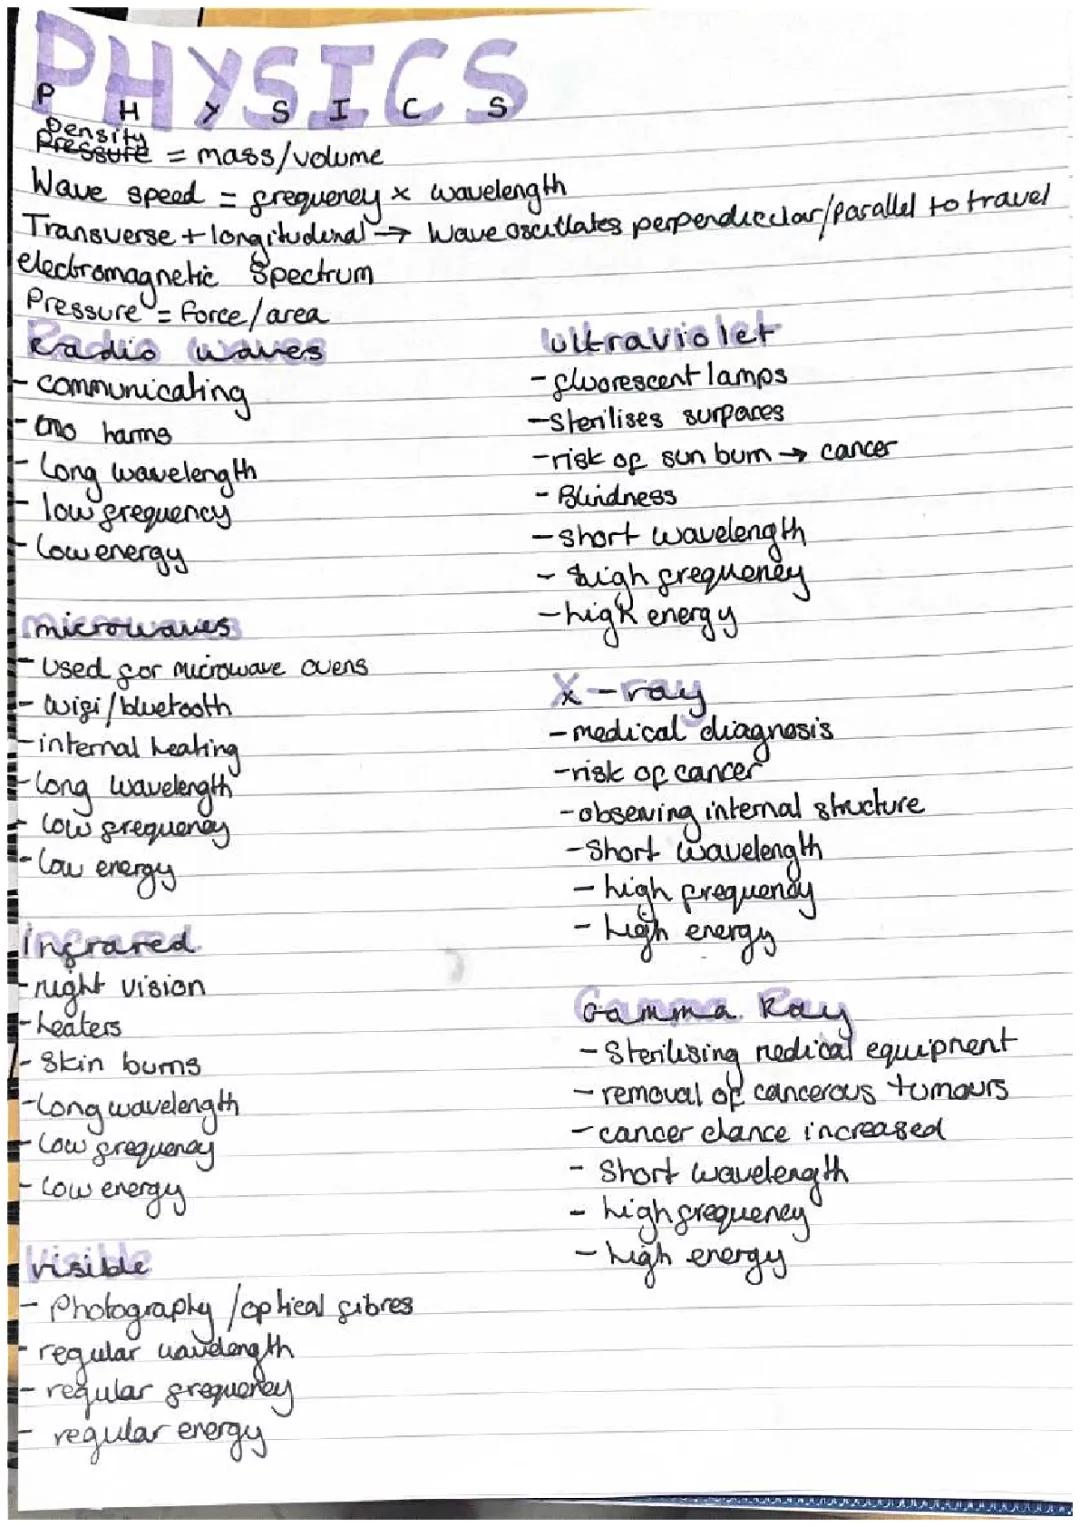 PHYSICS
P H Y S I C S
Density
Pressure = mass/volume
Wave speed = frequency x wavelength
Transverse + longitudinal → Wave oscillates perpendicular/parallel to travel
electromagnetic Spectrum
Pressure = force/area
Radio waves
- communicating
- no harms
- Long wavelength
- low frequency
- Low energy
microwaves
- Used for microwave ovens
- wifi/bluetooth
- internal heating
- Long wavelength
- Low frequency
- Low energy
infrared
- night vision
- heaters
- Skin burns
- Long wavelength
- Low frequency
- Low energy
Visible
- Photography/optical fibres
- regular wavelength
- regular frequency
- regular energy
Ultraviolet
- fluorescent lamps
- Sterilises surfaces
- risk of sun burn → cancer
- Blindness
- short wavelength
- high frequency
- high energy
X-ray
- medical diagnosis
- risk of cancer
- observing internal structure
- Short wavelength
- high frequency
- high energy
Gamma Ray
- Sterilising medical equipment
- removal of cancerous tumours
- cancer chance increased
- Short wavelength
- high frequency
- high energy